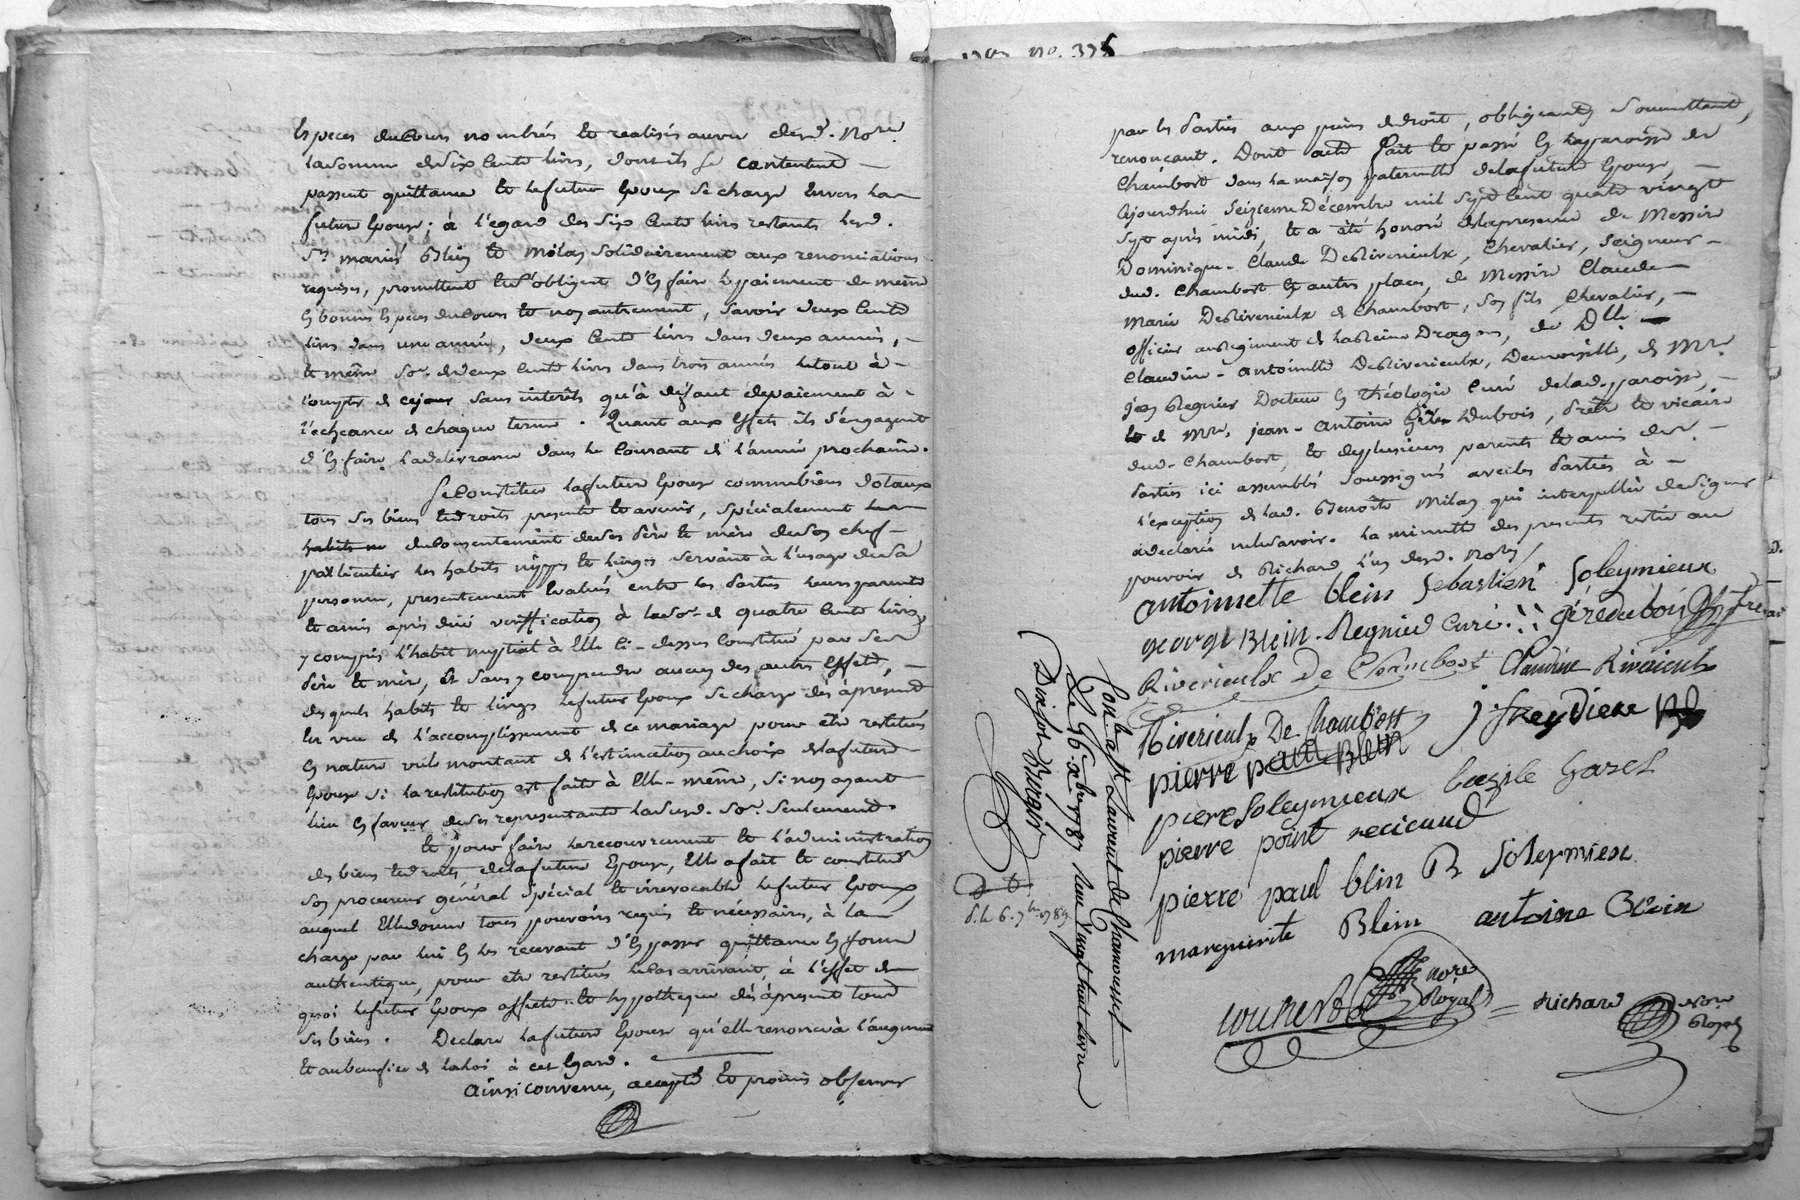 Especes du Cours nombrés et realisés au vu desd. Nores
la somme de six Cents livres, dont ils se contentent
passent quittance et le futur Epoux se charge Envers la
future Epouse ; à l'egard des six Cents livres restants lesd.
Srs mariés Blein et Milan solidairement aux renonciations
requises, promettent et s'obligent d'En faire le paiement de même
En bonnes Especes du Cours et non autrement, Savoir deux Cents
livres dans une année, deux Cents livres dans deux années,
et même Se. de deux Cents livres dans trois années le tout à
Compter de ce jour sans interêts qu'à défaut de paiement à
l'echeance de chaque terme. Quant aux Effets ils s'engagent
d'En faire la délivrance dans le Courant de l'année prochaine.
Se Constitue la future Epouse comme biens dotaux
tous ses biens et droits presents et avenir, spécialement
habits du Consentement de ses Père et mère de son chef
particulier les habits nippes et linges servant à l'usage de sa
personne, presentement Evalués entre les Parties leurs parents
et amis après düe vérification à la Se. de quatre Cents livres
y compris l'habit nuptial à Elle Ci-dessus Constitué par sesd.
Père et mère, Et sans y comprendre aucun des autres Effets,
desquels habits et linges le futur Epoux se charge dès àpresent
En vue de l'accomplissement de ce mariage pour être restitués
En nature ou le montant de l'estimation au choix de la future
Epouse si la restitution est faite à Elle-même, si non ayant
lieu En faveur de ses representants la susd. Se. seulement
Et pour faire le recouvrement et l'administration
des biens et droits de la future Epouse, Elle a fait et constitué
son procureur général spécial et irrevocable le futur Epoux
auquel Elle donne tous pouvoirs requis et nécessaires, à la
charge par lui En les recevant d'En passer quittance En forme
authentique, pour etre restitués le Cas arrivant, à l'effet de
quoi le futur Epoux affecte et hypotheque dès àpresent tous
ses biens. Declare la future Epouse qu'elle renonce à l'augment
et au benefice de la loi à cet Egard.
Ainsi convenu, accepté et promis observer
1787 No. 375
par les Parties aux peines de droit, obligeants, soumettants,
renonçant. Dont acte fait et passé En la paroisse de
Chambost dans la maison paternelle de la future Epouse,
Ajourdhui seizieme Décembre mil sept Cent quatre vingt
sept après midi, et a été honoré de la presence de Messire
Dominique-Claude De Riverieulx, Chevalier, Seigneur
dud. Chambost Et autres places, de Messire Claude
Marie De Riverieulx de Chambost, son fils Chevalier,
officier au regiment de la Reine Dragons, de Dlle
Claudine-Antoinette De Riverieulx, Demoiselle, de Mre
Jean Regnier Docteur En théologie Curé de lad. paroisse,
et de Mre. Jean-Antoine Géré Dubois, Prêtre et vicaire
dud. Chambost, et de plusieurs parents et amis des
Parties ici assemblés soussignés avec les Parties à
l'exception de lad. Benoîte Milan qui interpellée de signer
a declaré ne le savoir. La minutte des presents restée au
pouvoir de Richard l'un desd. Nores
antoinette blein Sebastien Soleymieux
george Blein. Regnier Curé. géré dubois
Riverieulx De Chambost Claudine Riverieulx
Riverieulx De Chambost j. freydiere
pierre paul Blein
pierre Soleymieux bazile Garel
pierre point
pierre paul blin B Solermieux
marguerite Blein antoine Blein
nore Royal Richard nore Royal
Con.lé a St Laurent de Chamousset
Le 26 xbre 1787 Reçu Vingt huit livres
Dix sols